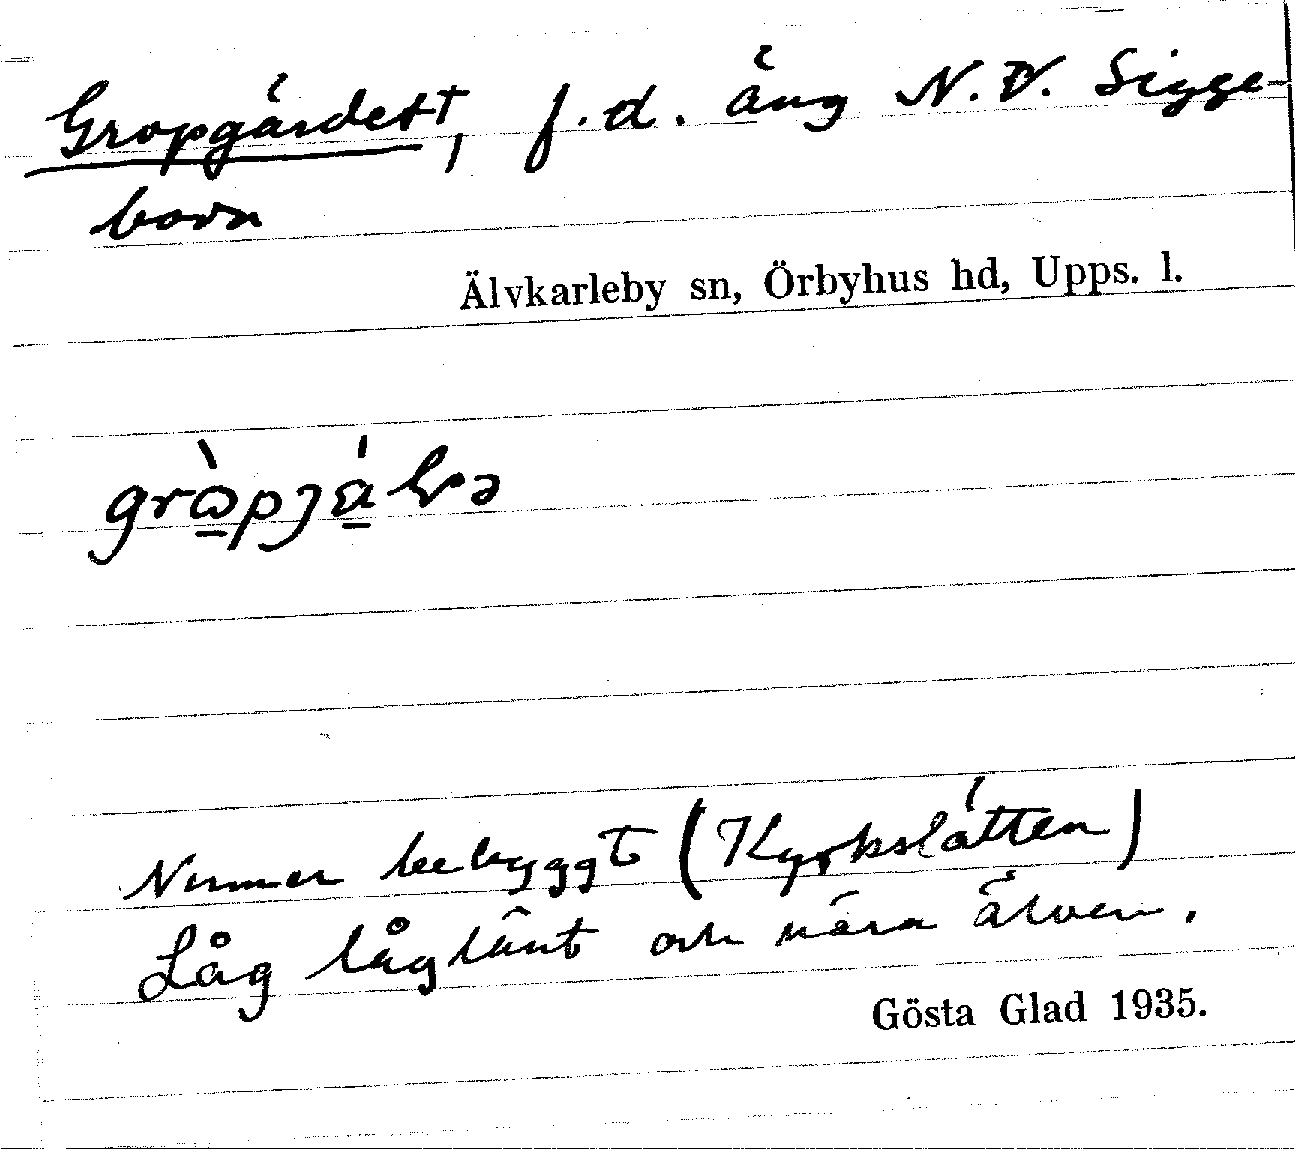 Gropgärdet†, f.d. äng N.V. Sigge-
boda
Älvkarleby sn, Örbyhus hd, Upps. l.
Numer bebyggt (Kyrkslätten)
Låg låglänt och nära älven.
Gösta Glad 1935.